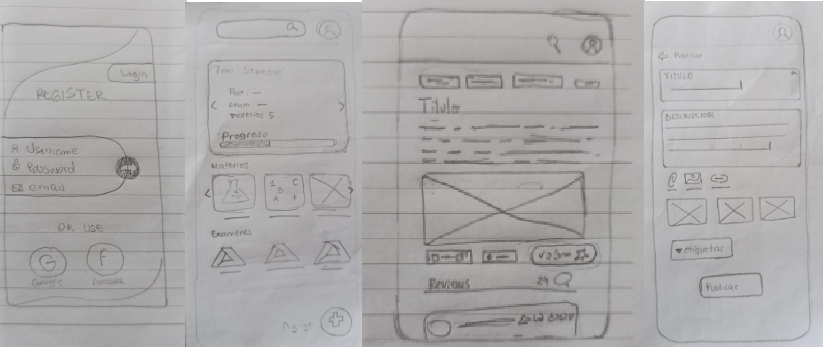 Login
REGISTER
Username
Password
email
OR USE
G
Google
F
Facebook
7mo. Semestre
Post: —
exam —
materias 5
Progreso
Materias
Examenes
Titulo
Valorar
Reviews
29
Publicar
TITULO
DESCRIPCION
etiquetas
Publicar